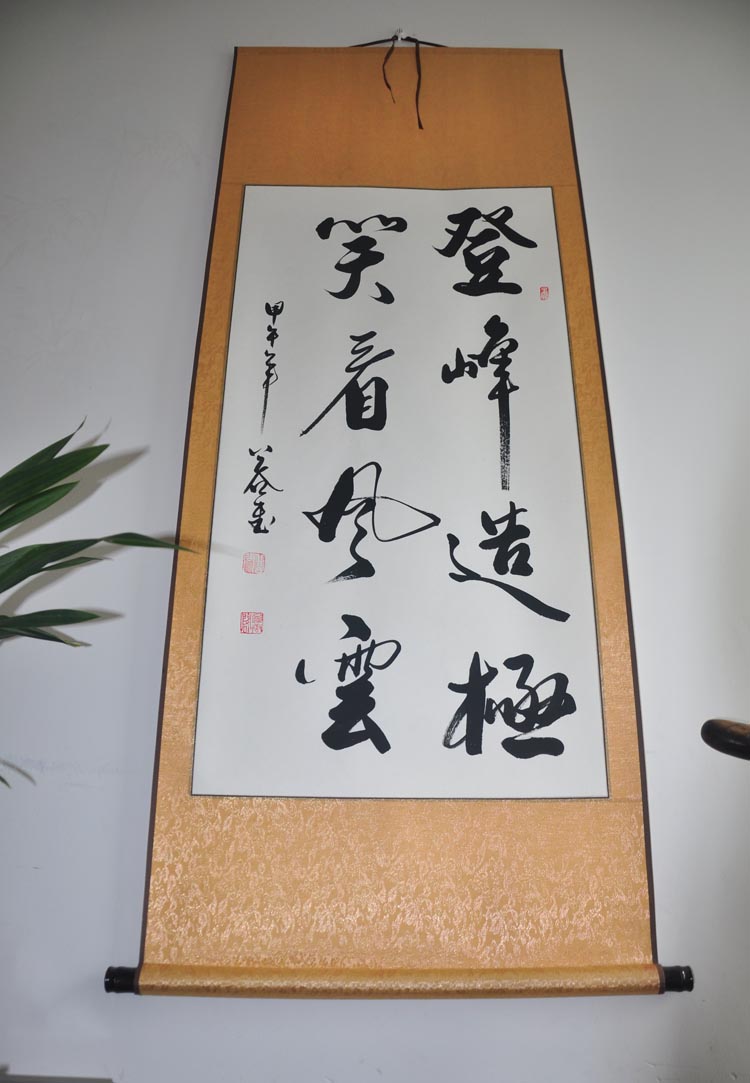 登峰造極
笑看風雲
甲午年